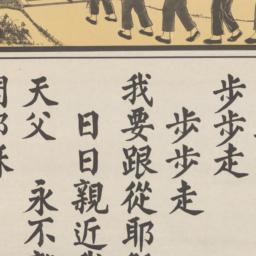 步步走
步步走
我要跟從耶
日日親近
天父 永不